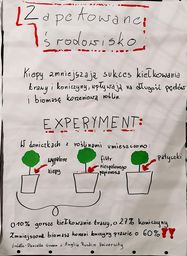 Zapetowane
środowisko
Kiepy zmniejszają sukces kiełkowania
trawy i koniczyny, wpływają na długość pędów
i biomasę korzeniową roślin
EXPERYMENT:
W doniczkach z roślinami umieszczono:
wypalone
kiepy
filtry
niespalonego
papierosa
patyczki
o 10% gorsze kiełkowanie trawy, o 27% koniczyny
Zmniejszona biomasa korzeni koniczyny prawie o 60%!!
źródło: Danielle Green z Anglia Ruskin University